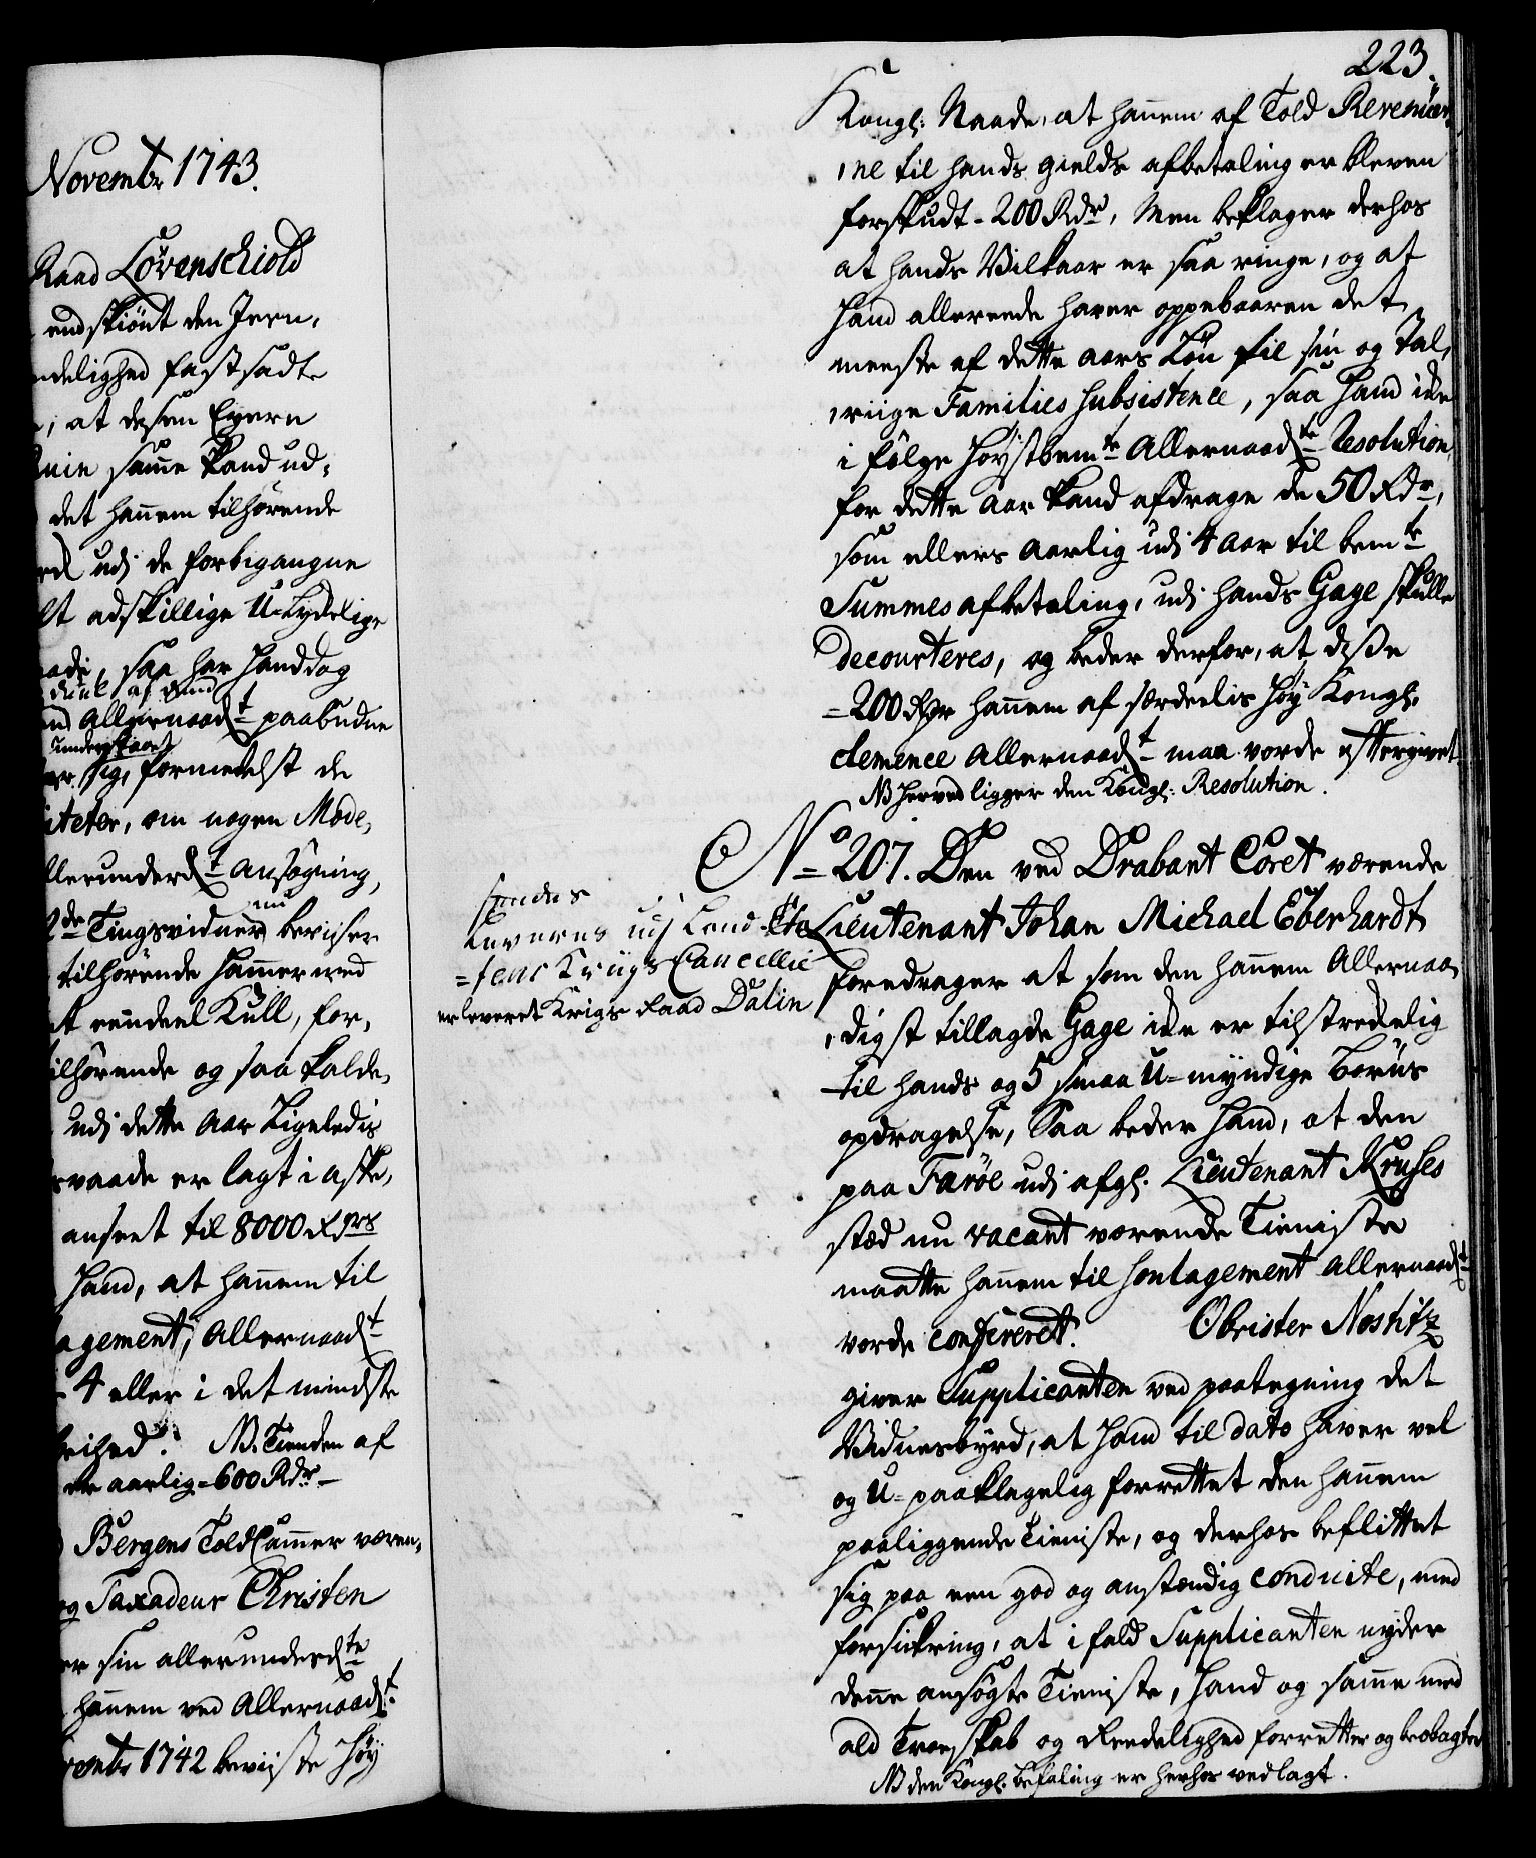 Novembr 1743.
Raad Løvenschiold
endskiønt den Jern,
ndelighed fastsadte
, at dessen Eyere
samme kand ud,
det hannem tilhørende
udj de forbigangne
lt adskillige U-lydelige
saa har hand dog
Allernaad.t paabudne
sig, formedelst de
iteter, om nogen Mode,
llerunderd.t ansøgning,
nu
Tingsvidner beviser
tilhørende Hammer med
t eendeel Kull, for,
ilhørende og saa kalde,
udj dette Aar Ligeledis
vaade er lagt i aske,
anseet til 8000 Rdrs
Hand, at hannem til
agement, Allernaad.t
4 eller i det mindste
reihed. NB. Tienden af
aarlig = 600 Rdr
Bergens Told Cammer væren,
og Taxadeur Christen
er sin allerunderd.te
hannem ved Allernaad.t
vembr 1742 beviste Høy
223.
Kongl: Naade, at hannem af Told Revenüer,
,ne til hands gields afbetaling er bleven
forskudt = 200 Rdr, Men beklager derhos
at hands Vilkaar er saa ringe, og at
Hand allereede haver oppebaaren det
meeste af dette aars Løn til sin og Tal,
,riige Families subsistence, saa Hand icke
i følge Høystbem.te Allernaad.te Resolution,
for dette Aar kand afdrage de 50 Rdr,
som ellers Aarlig udj 4 Aar til bem.te
Summes afbetaling, udj hands Gage skulle
decourteres, og beder derfor, at disse
= 200 Rdr hannem af særdeelis Høy Kongl:
clemence Allernaad.t maa vorde eftergivet.
NB herved ligger den Kongl: Resolution.
No 207. Den ved Drabant Coret værende
Lieutenant Johan Michael Eberhardt
sendes
Leveres udj Land-Eta
=tens Kriigs Cancellie
er leveret Krigs Raad Dalin
foredrager at som den hannem Allernaa,
,digst tillagde Gage icke er tilstreckelig
til hands og 5 smaa U=myndige Børns
opdragelse, Saa beder Hand, at den
paa Færöe udj afgl: Lieutenant Kruses
stæd nu vacant værende Tieniste
maatte hannem til Soulagement Allernaad.t
vorde confereret. Obrister Nostitz
giver Supplicanten ved paategning det
Vidnesbyrd, at Hand til dato haver vel
og U=paaklagelig forrettet den hannem
paaliggende Tieniste, og derhos beflittet
sig paa een god og anstændig conduite, med
forsickring, at i fald Supplicanten nyder
denne ansøgte Tieniste, Hand og samme med
ald Troeskab og Reedelighed forretter og beobagter
NB den Kongl: befaling er herhos vedlagt.